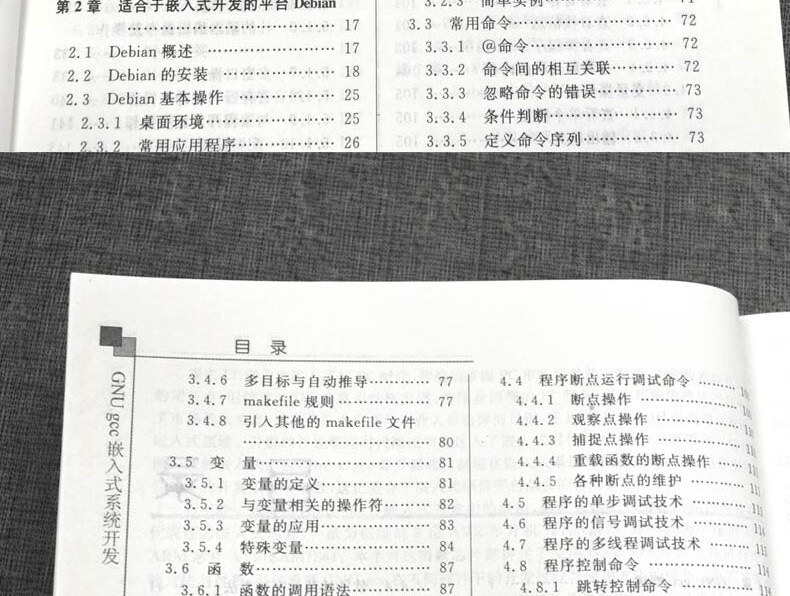 第 2 章 适合于嵌入式开发的平台 Debian
………… 17
2.1 Debian 概述 ………… 17
2.2 Debian 的安装 ………… 18
2.3 Debian 基本操作 ………… 25
2.3.1 桌面环境 ………… 25
2.3.2 常用应用程序 ………… 26
3.2.3 简单实例 ………… 71
3.3 常用命令 ………… 72
3.3.1 @命令 ………… 72
3.3.2 命令间的相互关联 ………… 72
3.3.3 忽略命令的错误 ………… 73
3.3.4 条件判断 ………… 73
3.3.5 定义命令序列 ………… 73
目 录
GNU gcc 嵌入式系统开发
3.4.6 多目标与自动推导 ………… 77
3.4.7 makefile 规则 ………… 77
3.4.8 引入其他的 makefile 文件
………… 80
3.5 变 量 ………… 81
3.5.1 变量的定义 ………… 81
3.5.2 与变量相关的操作符 ………… 82
3.5.3 变量的应用 ………… 83
3.5.4 特殊变量 ………… 84
3.6 函 数 ………… 87
3.6.1 函数的调用语法 ………… 87
4.4 程序断点运行调试命令 …………
4.4.1 断点操作 …………
4.4.2 观察点操作 …………
4.4.3 捕捉点操作 …………
4.4.4 重载函数的断点操作 …………
4.4.5 各种断点的维护 …………
4.5 程序的单步调试技术 …………
4.6 程序的信号调试技术 …………
4.7 程序的多线程调试技术 …………
4.8 程序控制命令 …………
4.8.1 跳转控制命令 …………